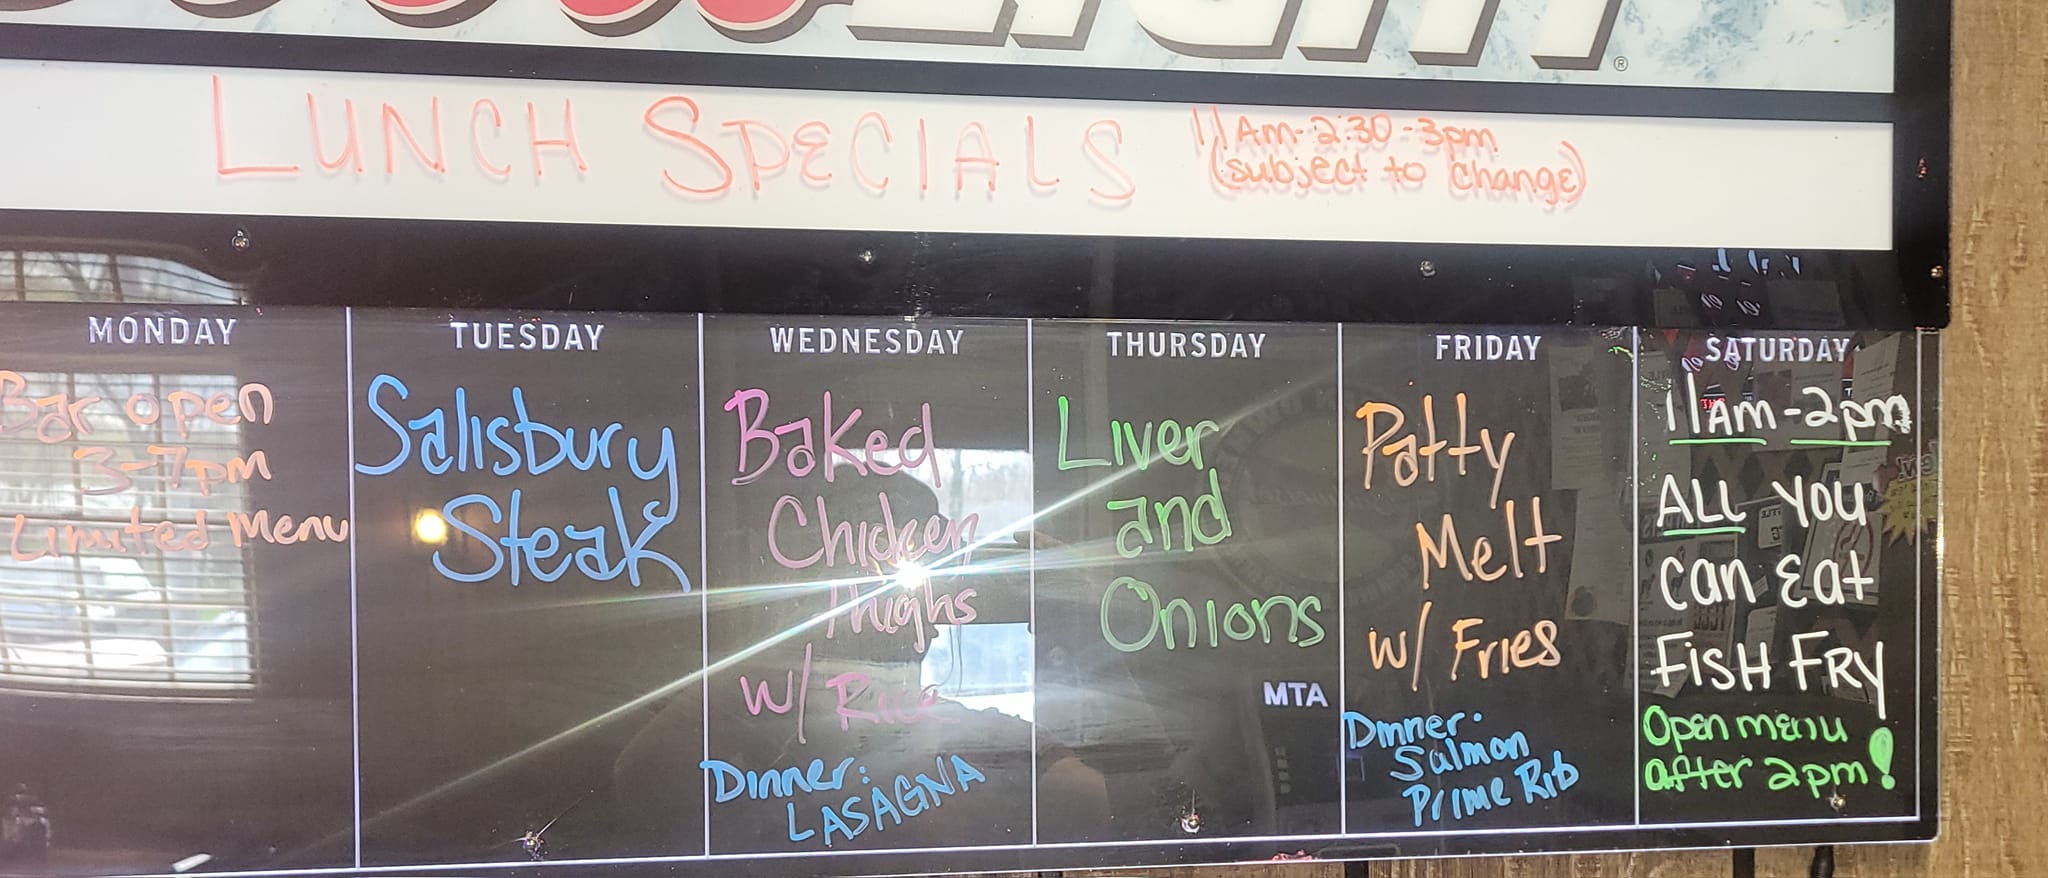 LIGHT
®
LUNCH SPECIALS
11Am-2:30-3pm
(subject to change)
MONDAY
Bar open
3-7pm
Limited Menu
TUESDAY
Salisbury
Steak
WEDNESDAY
Baked
Chicken
Thighs
w/ Rice
Dinner:
LASAGNA
THURSDAY
Liver
and
Onions
MTA
FRIDAY
Patty
Melt
w/ Fries
Dinner:
Salmon
Prime Rib
SATURDAY
11AM-2pm
ALL YOU
Can Eat
FISH FRY
Open menu
after 2pm!